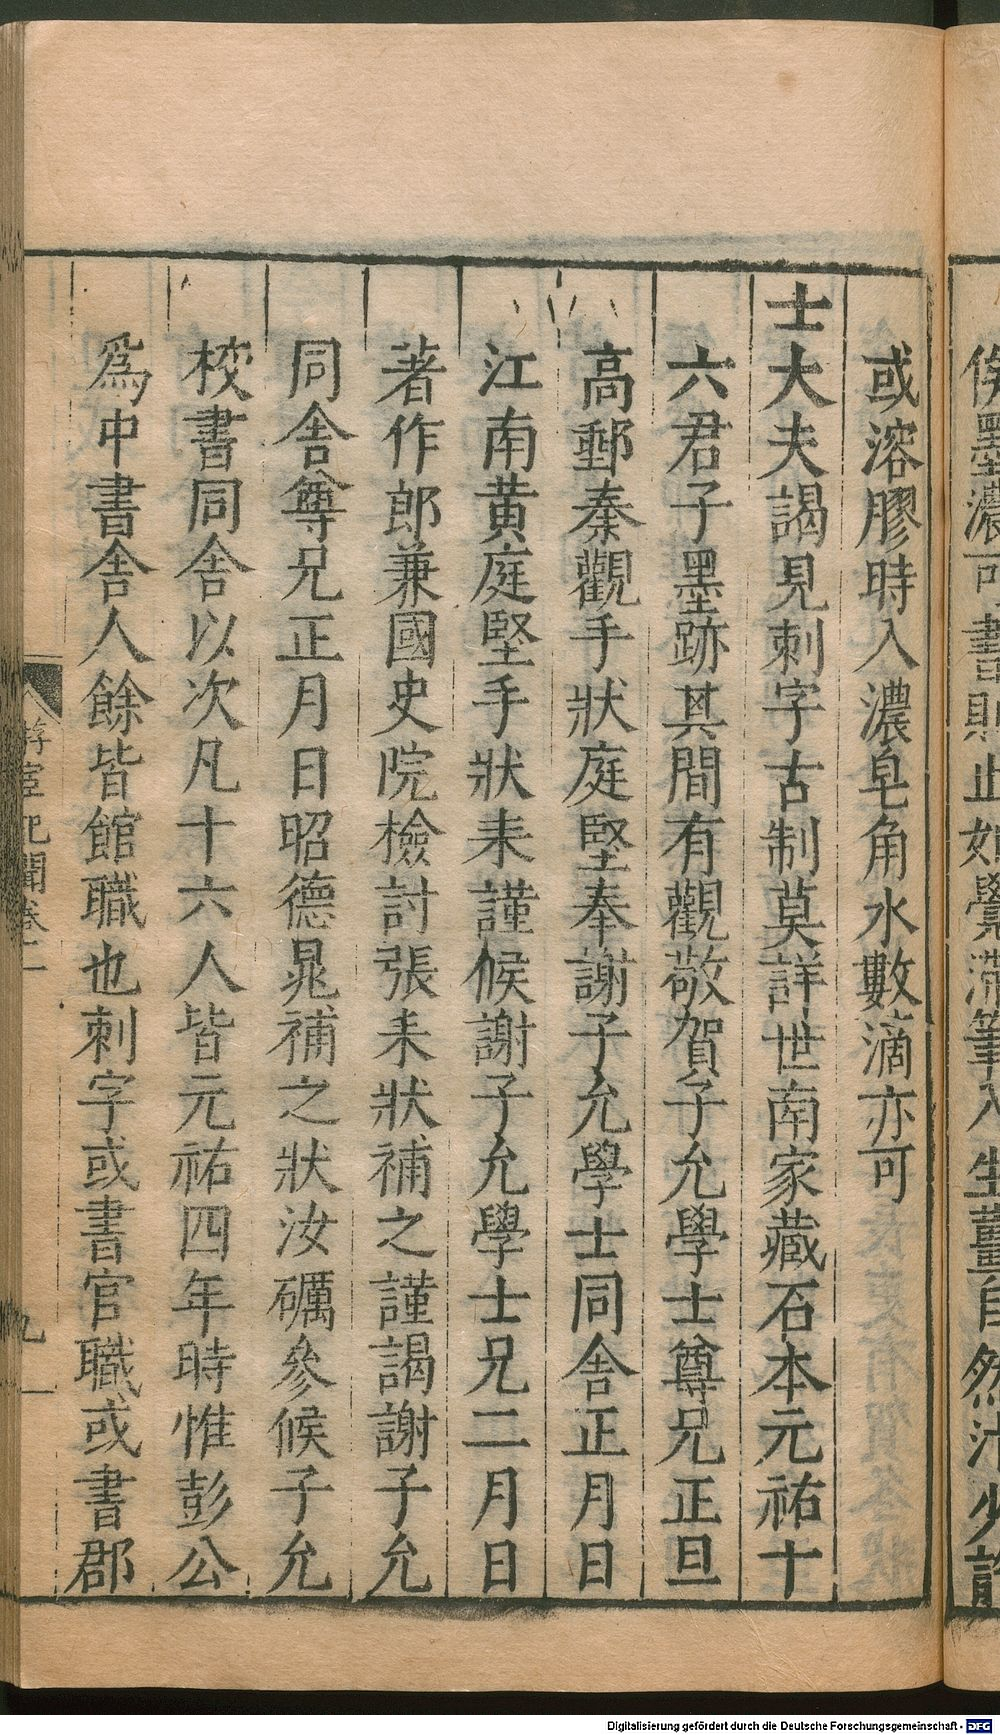 或溶膠時入濃皂角水數滴亦可
士大夫謁見刺字古制莫詳世南家藏石本元祐十
六君子墨跡其間有觀敬賀子允學士尊兄正旦
高郵秦觀手狀庭堅奉謝子允學士同舍正月日
江南黃庭堅手狀耒謹候謝子允學士兄二月日
著作郎兼國史院檢討張耒狀補之謹謁謝子允
同舍尊兄正月日昭德晁補之狀汝礪參候子允
校書同舍以次凡十六人皆元祐四年時惟彭公
爲中書舍人餘皆館職也刺字或書官職或書郡
游宦紀聞卷 九
Digitalisierung gefördert durch die Deutsche Forschungsgemeinschaft - DFG